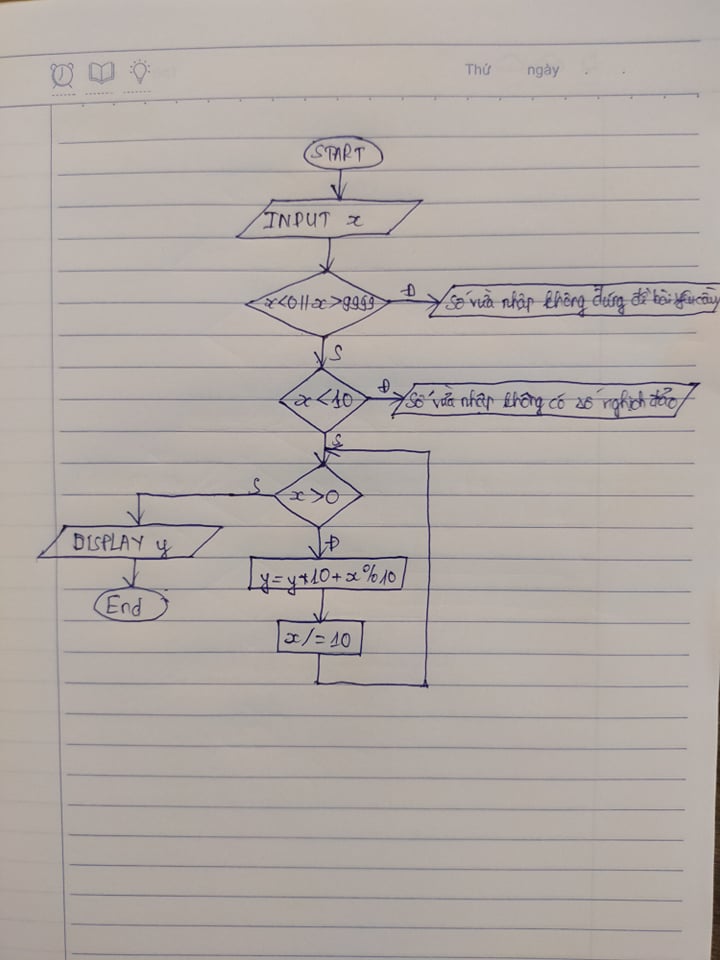 Thứ ngày . .
START
INPUT x
x<0||x>9999
Đ
Số vừa nhập không đúng đề bài yêu cầu
S
x<10
Đ
Số vừa nhập không có số nghịch đảo
S
x>0
S
DISPLAY y
End
Đ
y=y*10+x%10
x/=10